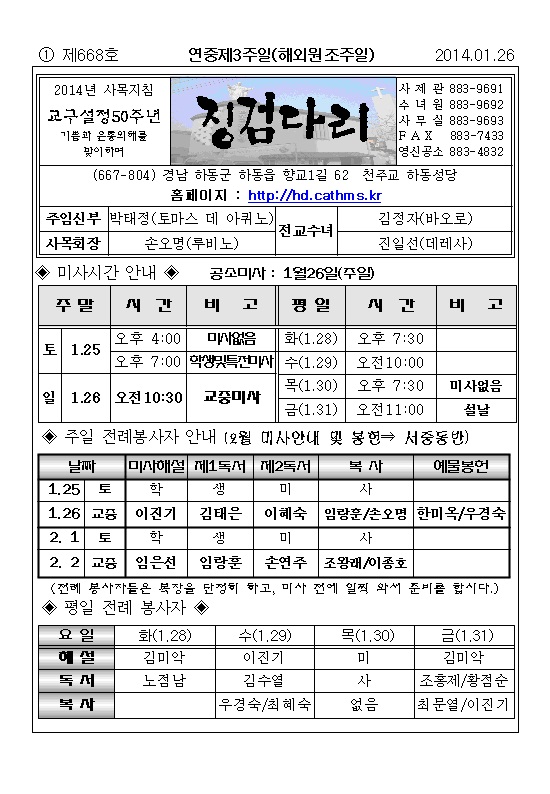 ① 제668호 연중제3주일(해외원조주일) 2014.01.26
2014년 사목지침
교구설정50주년
기쁨과 은총의해를
맞이하며
징검다리
사 제 관 883-9691
수 녀 원 883-9692
사 무 실 883-9693
F A X 883-7433
영신공소 883-4832
(667-804) 경남 하동군 하동읍 향교1길 62 천주교 하동성당
홈페이지 : http://hd.cathms.kr
주임신부 박태정(토마스 데 아퀴노) 전교수녀 김정자(바오로)
사목회장 손오명(루비노) 진일선(데레사)
◈ 미사시간 안내 ◈ 공소미사 : 1월26일(주일)
주 말 시 간 비 고 평 일 시 간 비 고
토 1.25 오후 4:00 미사없음 화(1.28) 오후 7:30
오후 7:00 학생및특전미사 수(1.29) 오전10:00
일 1.26 오전10:30 교중미사 목(1.30) 오후 7:30 미사없음
금(1.31) 오전11:00 설날
◈ 주일 전례봉사자 안내 (2월 미사안내 및 봉헌⇒ 서중동반)
날짜 미사해설 제1독서 제2독서 복 사 예물봉헌
1.25 토 학 생 미 사
1.26 교중 이진기 김태은 이혜숙 임랑훈/손오명 한미옥/우경숙
2. 1 토 학 생 미 사
2. 2 교중 임은선 임랑훈 손연주 조왕래/이종호
(전례 봉사자들은 복장을 단정히 하고, 미사 전에 일찍 와서 준비를 합시다.)
◈ 평일 전례 봉사자 ◈
요 일 화(1.28) 수(1.29) 목(1.30) 금(1.31)
해 설 김미악 이진기 미 김미악
독 서 노점남 김수열 사 조홍제/황점순
복 사 우경숙/최혜숙 없음 최문열/이진기